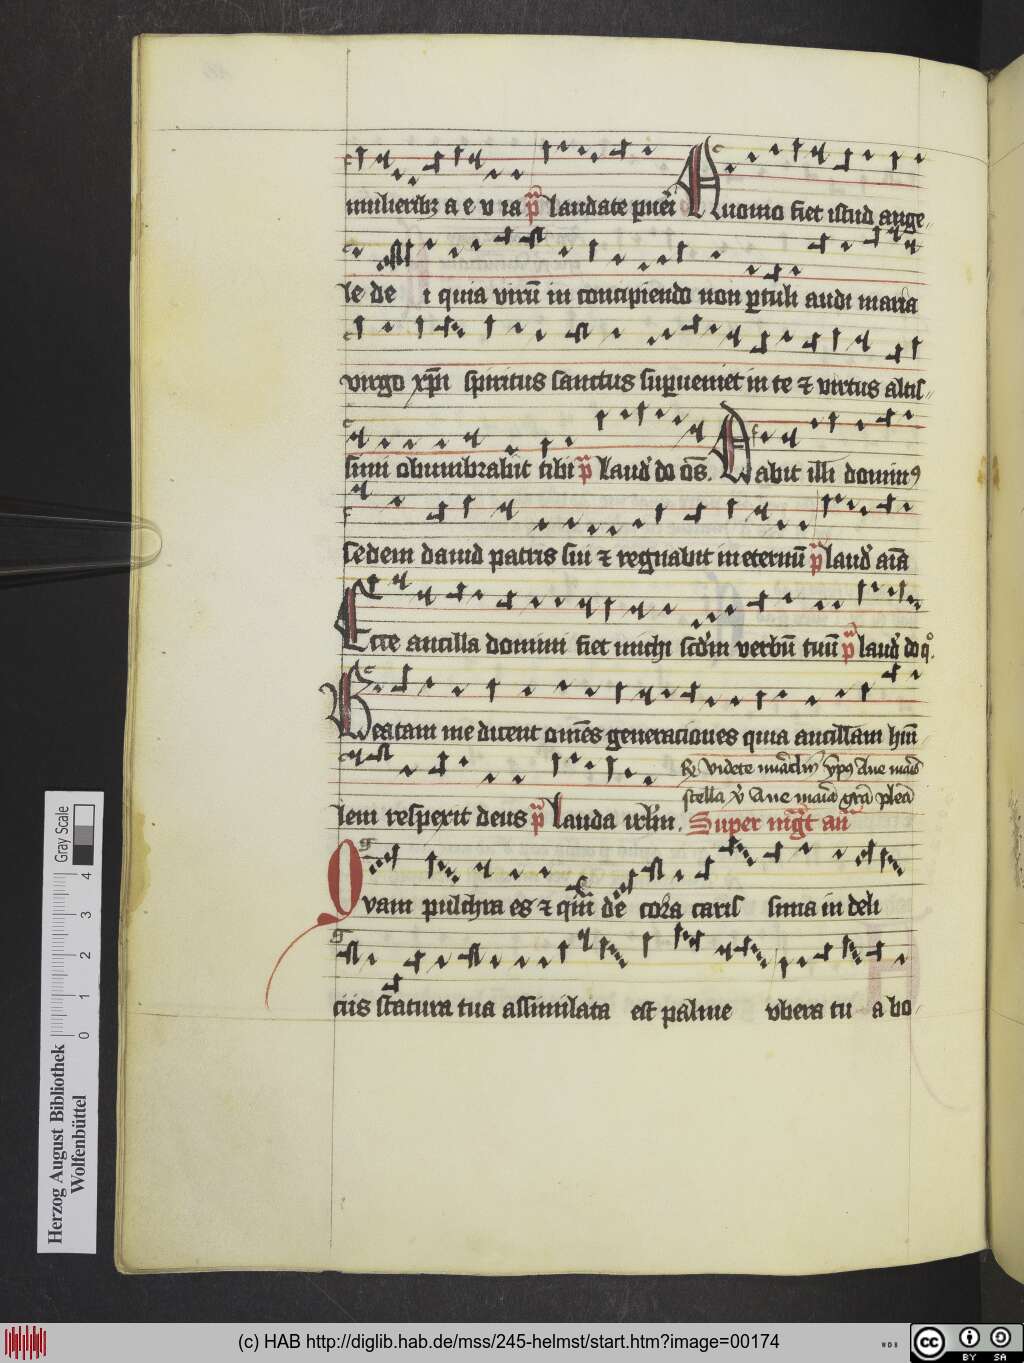 mulieribꝫ a e v ia p̃ laudate pueri Quomo fiet istud ange
le de i quia virū in concipiendo non ꝑtuli audi maria
virgo xp̄i spiritus sanctus suꝑueniet in te ⁊ virtus altis
simi obumbrabit tibi p̃ laud᷒ do om̄s. Dabit illi dominꝰ
sedem dauid patris sui ⁊ regnabit in eternū p̃ laud᷒ aīa
Ecce ancilla domini fiet michi scd᷒m verbū tuū p̃ laud᷒ do q̊.
Beatam me dicent om̄es generaciones quia ancillam hūi
lem respexit deus p̃ Lauda irl̄m. Super mg̃t an᷒
R̷ videte miraclm̄ ymꝰ Aue maris
stella v᷒ Aue maria gr̄a plena
Quam pulchra es ⁊ q̄m de cora caris sima in deli
ciis statura tua assimilata est palme vbera tu a bo
Herzog August Bibliothek
Wolfenbüttel
0 1 2 3 4
Gray Scale
(c) HAB http://diglib.hab.de/mss/245-helmst/start.htm?image=00174
WDB
cc BY SA